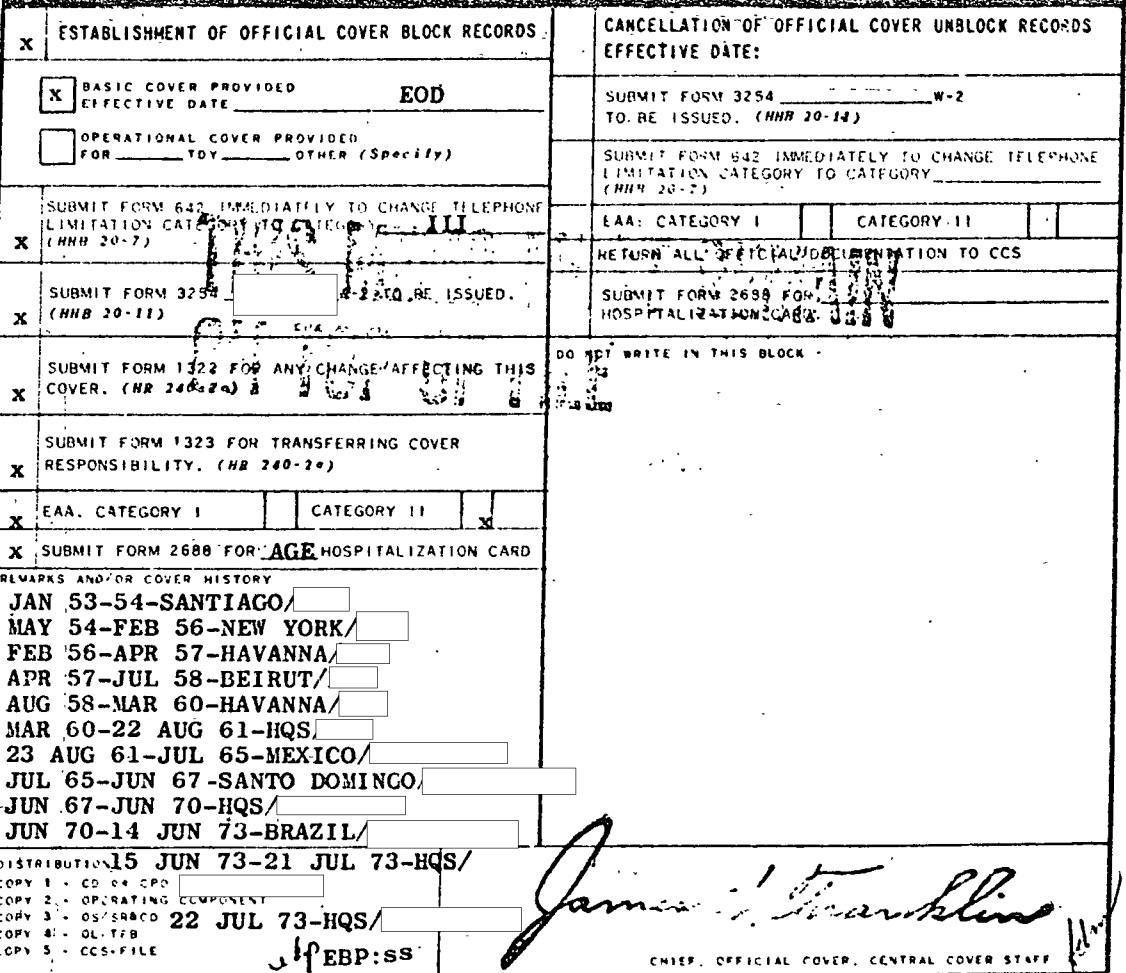 X ESTABLISHMENT OF OFFICIAL COVER BLOCK RECORDS
X BASIC COVER PROVIDED
EFFECTIVE DATE EOD
OPERATIONAL COVER PROVIDED
FOR TDY OTHER (Specify)
SUBMIT FORM 642 IMMEDIATELY TO CHANGE TELEPHONE
LIMITATION CATEGORY TO CATEGORY III
X (HHB 20-7)
SUBMIT FORM 3254 W-2 TO BE ISSUED.
X (HHB 20-11)
SUBMIT FORM 1322 FOR ANY CHANGE AFFECTING THIS
X COVER. (HR 240-2a)
SUBMIT FORM 1323 FOR TRANSFERRING COVER
X RESPONSIBILITY. (HR 240-2a)
X EAA. CATEGORY I CATEGORY II X
X SUBMIT FORM 2688 FOR AGE HOSPITALIZATION CARD
REMARKS AND/OR COVER HISTORY
JAN 53-54-SANTIAGO/
MAY 54-FEB 56-NEW YORK/
FEB 56-APR 57-HAVANNA/
APR 57-JUL 58-BEIRUT/
AUG 58-MAR 60-HAVANNA/
MAR 60-22 AUG 61-HQS
23 AUG 61-JUL 65-MEXICO/
JUL 65-JUN 67-SANTO DOMINGO/
JUN 67-JUN 70-HQS/
JUN 70-14 JUN 73-BRAZIL/
DISTRIBUTION 15 JUN 73-21 JUL 73-HQS/
COPY 1 - CD OR CPD
COPY 2 - OPERATING COMPONENT
COPY 3 - OS/SR&CD 22 JUL 73-HQS/
COPY 4 - OL-TFB
COPY 5 - CCS-FILE
EBP:ss
CANCELLATION OF OFFICIAL COVER UNBLOCK RECORDS
EFFECTIVE DATE:
SUBMIT FORM 3254 W-2
TO BE ISSUED. (HHB 20-11)
SUBMIT FORM 642 IMMEDIATELY TO CHANGE TELEPHONE
LIMITATION CATEGORY TO CATEGORY
(HHB 20-7)
EAA: CATEGORY I CATEGORY II
RETURN ALL OFFICIAL DOCUMENTATION TO CCS
SUBMIT FORM 2688 FOR
HOSPITALIZATION CARD
DO NOT WRITE IN THIS BLOCK -
James Franklin
CHIEF, OFFICIAL COVER, CENTRAL COVER STAFF